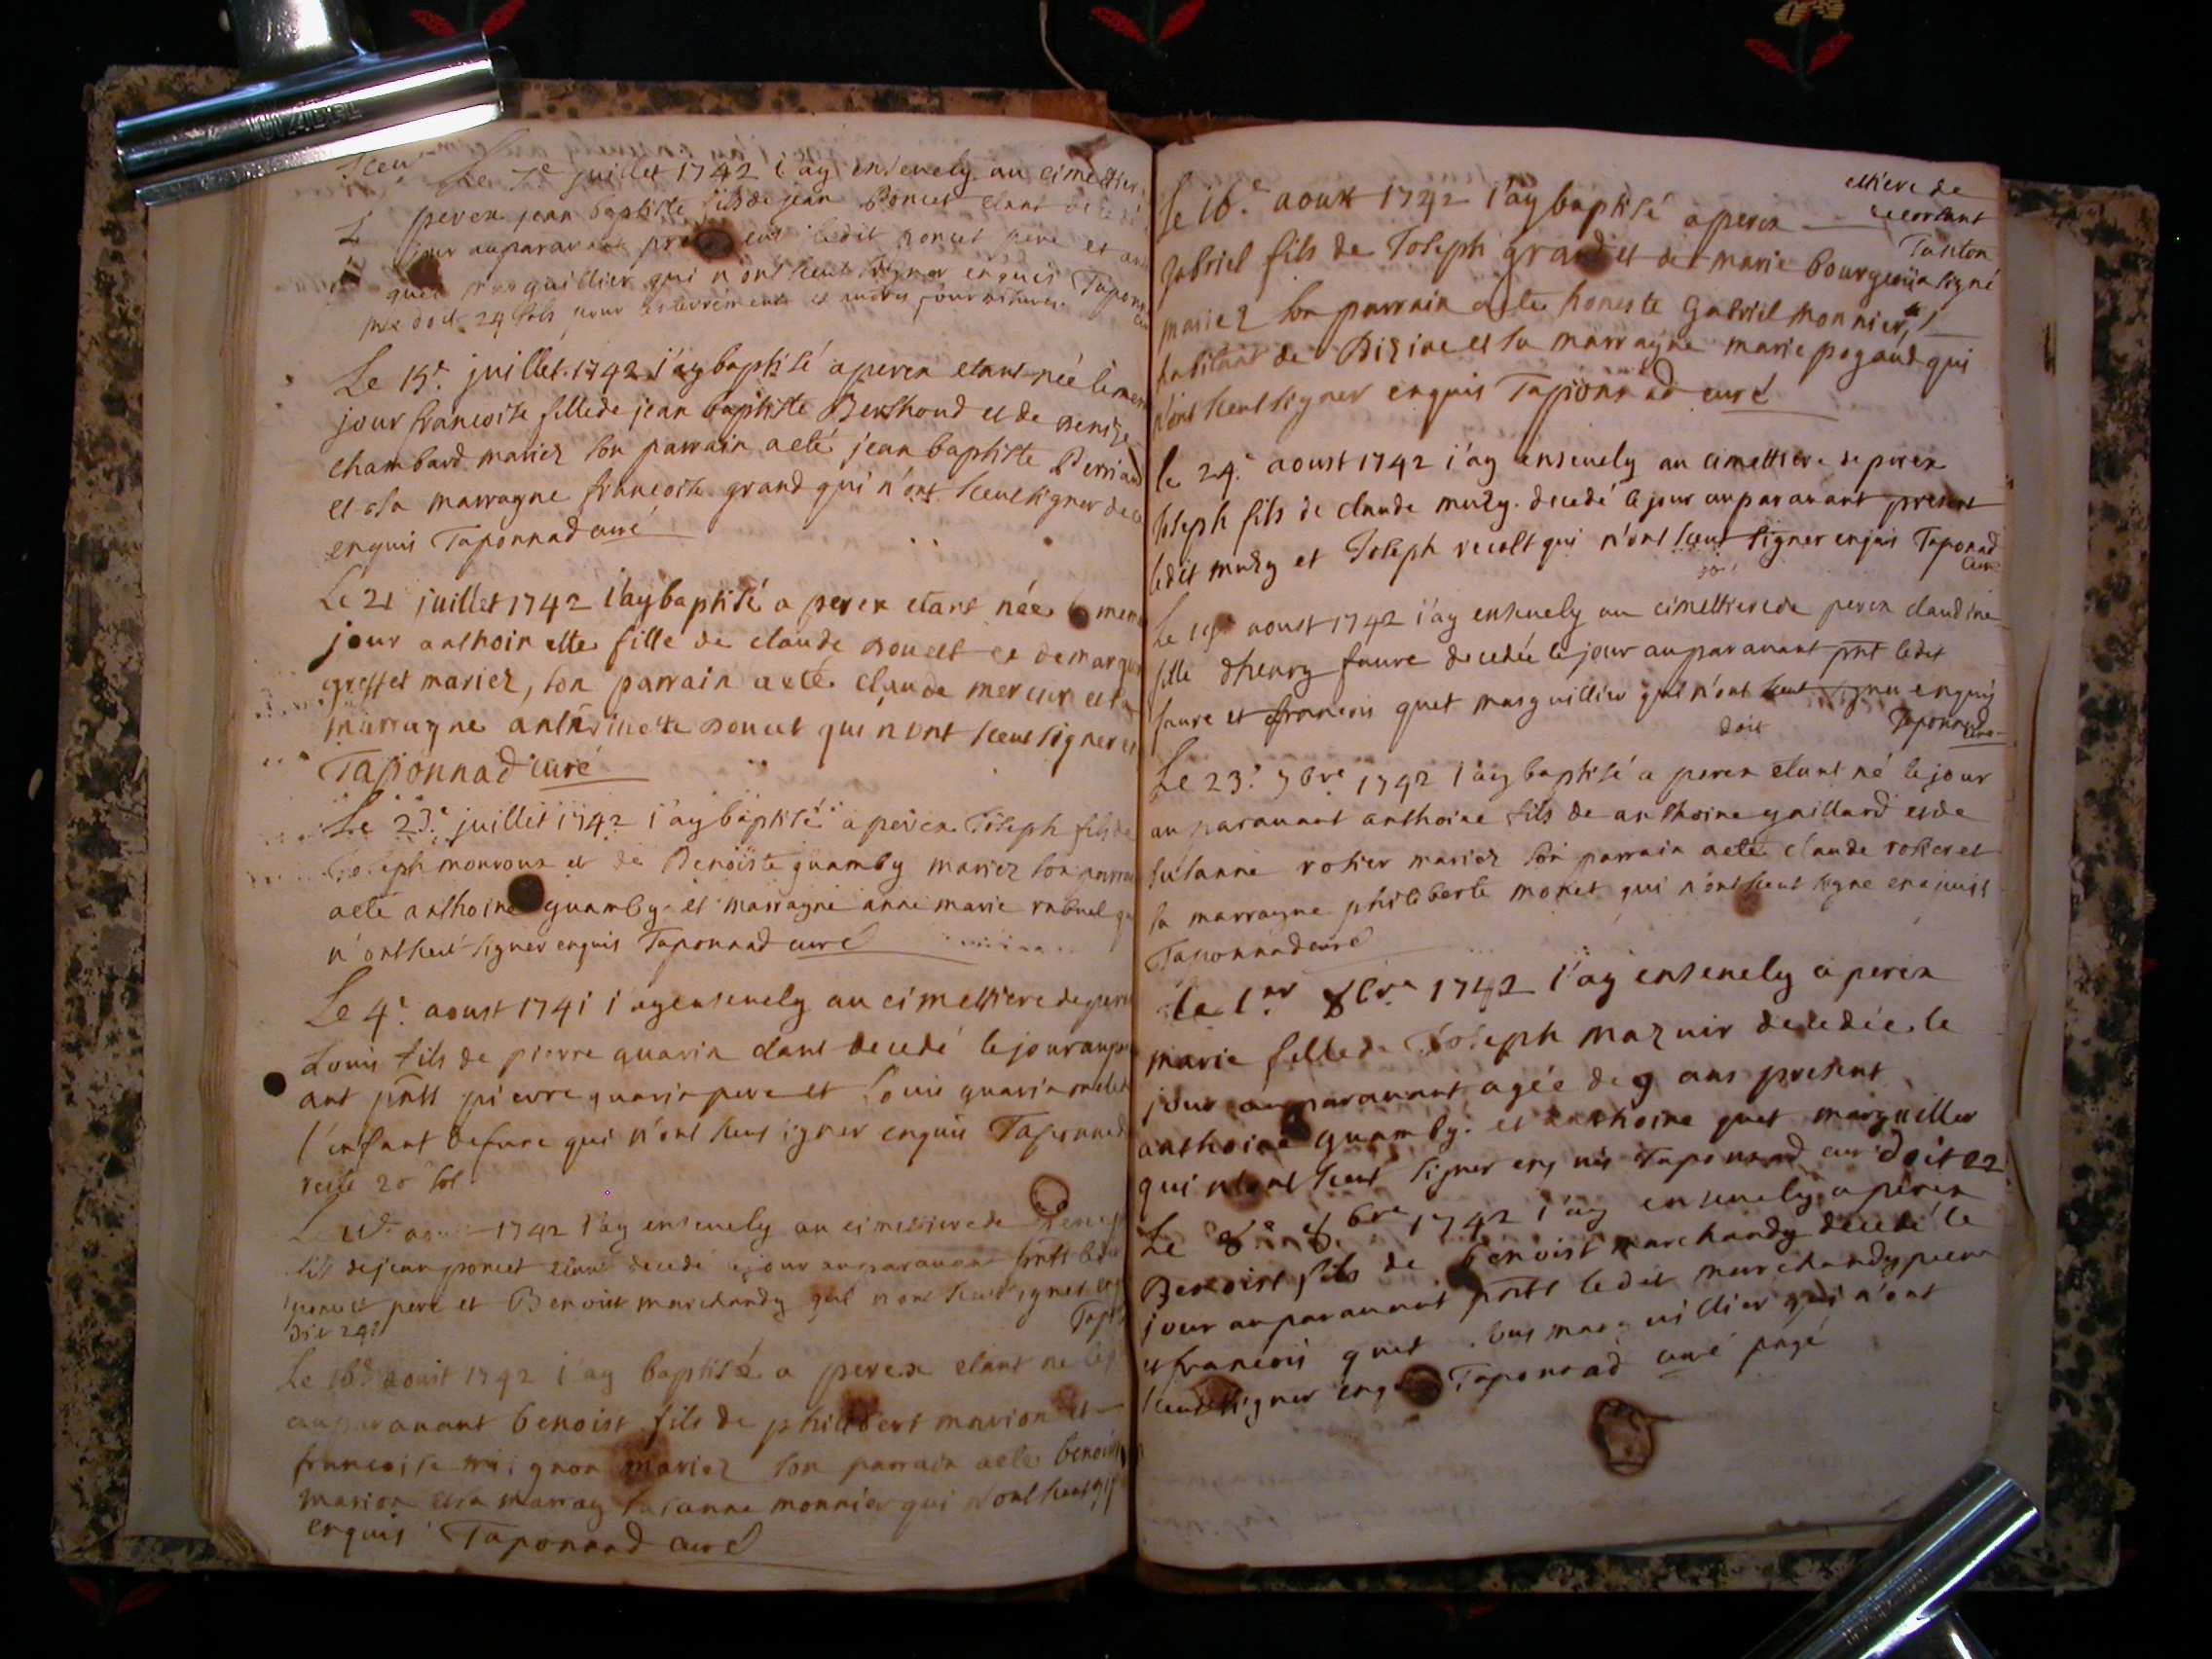 Le 7e juillet 1742 i'ay ensevely au cimettier
perex jean baptiste fils de jean Poncet etant
jour auparavant ledit poncet pere et
quet marguillier qui n'ont sceut signer enquis Tapon
doit 24 sols pour
Le 15e juillet 1742 i'ay baptisé a perex etant née le mem
jour francoise fille de jean baptiste Berthoud et de Denise
chambard mariez son parrain a eté jean baptiste Perriaud
et sa marrayne francoise grand qui n'ont sceut signer de ce
enquis Taponnad curé
Le 21 juillet 1742 i'ay baptisé a perex etant née le mem
jour anthoinette fille de claude et de margue
greffet mariez, son parrain a eté claude mercier et la
marrayne anthoinette qui n'ont sceut signer
Taponnad curé
Le 23e juillet 1742 i'ay baptisé a perex Joseph fils de
Joseph monvoux et de Benoiste guamby mariez son parrai
a eté anthoine guamby et marrayne anne marie rabuel qui
n'ont sceut signer enquis Taponnad curé
Le 4e aoust 1741 i'ay ensevely au cimettiere de perex
Louis fils de pierre quarin etant decedé le jour aupa
ant pnts pierre quarin pere et Louis quarin
l'enfant defunt qui n'ont sceut signer enquis Taponnad
reste 20 sol
1742 i'ay ensevely au cimettiere de
fils de jean poncet etant decedé le jour auparavant pnts ledit
poncet pere et Benoist marchandy qui n'ont sceut signer
doit 24s Tapon
Le 16e aoust 1742 i'ay baptisé a perex etant né le
auparavant benoist fils de philibert marion et
francoise mignon mariez son parrain a eté benoist
marion et sa marray susanne monnier qui n'ont sceut
enquis Taponnad curé
ettiere de
Le 16e aoux 1742 i'ay baptisé a perex
gabriel fils de Joseph grand et de marie bourgeois signé
mariez son parrain a eté honeste Gabriel monnier
habitant de Biziae et sa marrayne marie pogand qui
n'ont sceut signer enquis Taponnad curé
le 24e aoust 1742 i'ay ensevely au cimettiere de perex
Joseph fils de claude muzy decedé le jour auparavant present
ledit muzy et Joseph qui n'ont sceut signer enquis Taponad
curé
Le aoust 1742 i'ay ensevely au cimettiere de perex claudine
fille d'henry faure decedée le jour auparavant pnt ledit
faure et francois quet marguillier qui n'ont sceut signer enquis
doit Taponnad curé
Le 23e 7bre 1742 i'ay baptisé a perex etant né le jour
auparavant anthoine fils de anthoine gaillard et de
susanne rosier mariez son parrain a eté claude rosier et
sa marrayne philiberte monet qui n'ont sceut signe enquis
Taponnad curé
le 1er 8bre 1742 i'ay ensevely a perex
marie fille de Joseph mazuir decedée le
jour auparavant agée de 9 ans present
anthoine guamby et anthoine quet marguillier
qui n'ont sceut signer enquis Taponnad cur doit 22
Le 8e 8bre 1742 i'ay ensevely a perex
Benoist fils de benoist marchandy decedé le
jour auparavant pnts ledit marchandy pere
et francois quet marguillier qui n'ont
sceut signer enq Taponnad curé payé